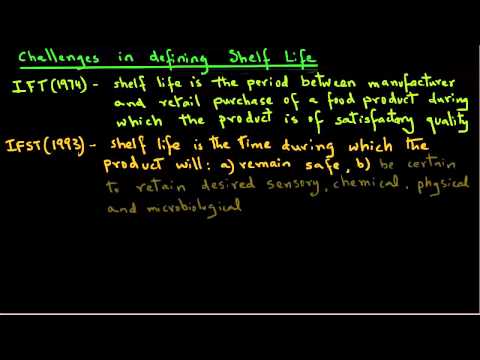 Challenges in defining Shelf Life
IFT(1974) - shelf life is the period between manufacturer
and retail purchase of a food product during
which the product is of satisfactory quality
IFST(1993) - shelf life is the time during which the
product will: a) remain safe, b) be certain
to retain desired sensory, chemical, physical
and microbiological